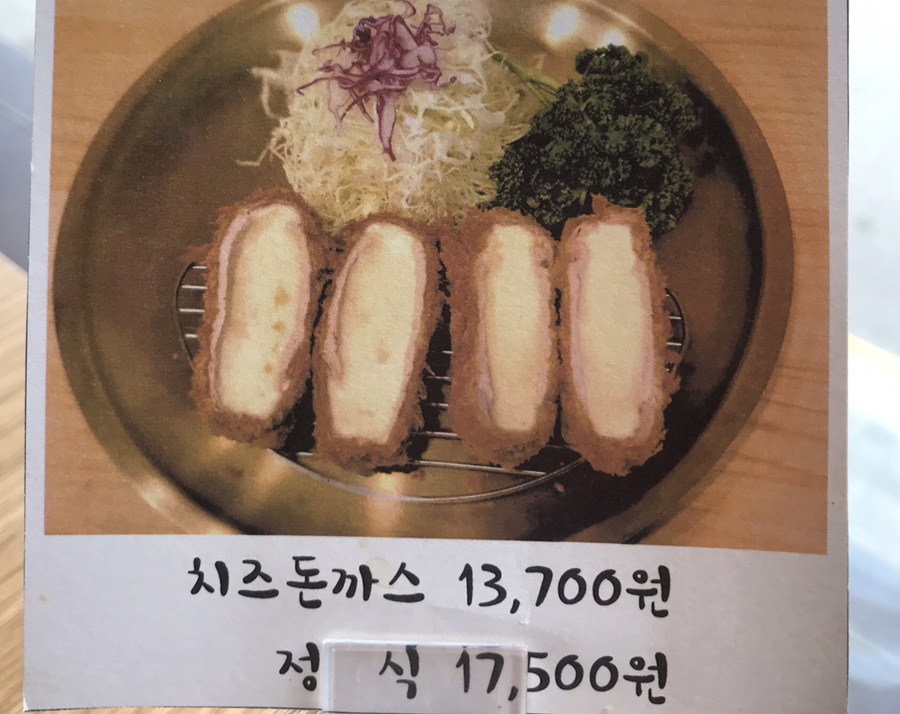 치즈돈까스 13,700원
정 식 17,500원